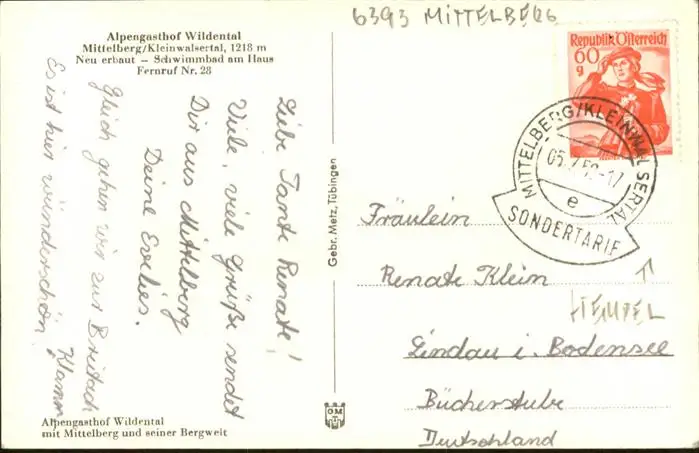 Alpengasthof Wildental
Mittelberg/Kleinwalsertal, 1218 m
Neu erbaut – Schwimmbad am Haus
Fernruf Nr. 28
Liebe Tante Renate!
Viele, viele Grüße sendet
Dir aus Mittelberg
Deine Evelies.
Gleich gehen wir zur Breitach
Klamm
Es ist hier wunderschön
Alpengasthof Wildental
mit Mittelberg und seiner Bergwelt
Gebr. Metz, Tübingen
OM
6393 MITTELBERG
Republik Österreich
60
g
MITTELBERG/KLEINWALSERTAL
e
SONDERTARIF
Fräulein
Renate Klein
Lindau i. Bodensee
Bücherstube
Deutschland